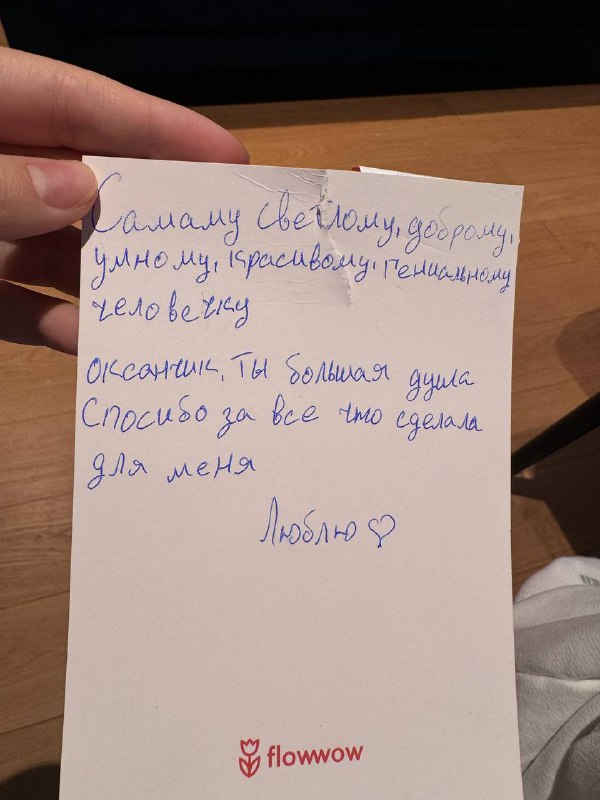 Самаму светлому, доброму,
умному, красивому, гениальному
человечку
оксанчик, ты большая душа
Спосибо за все что сделала
для меня
Люблю ♡
flowwow